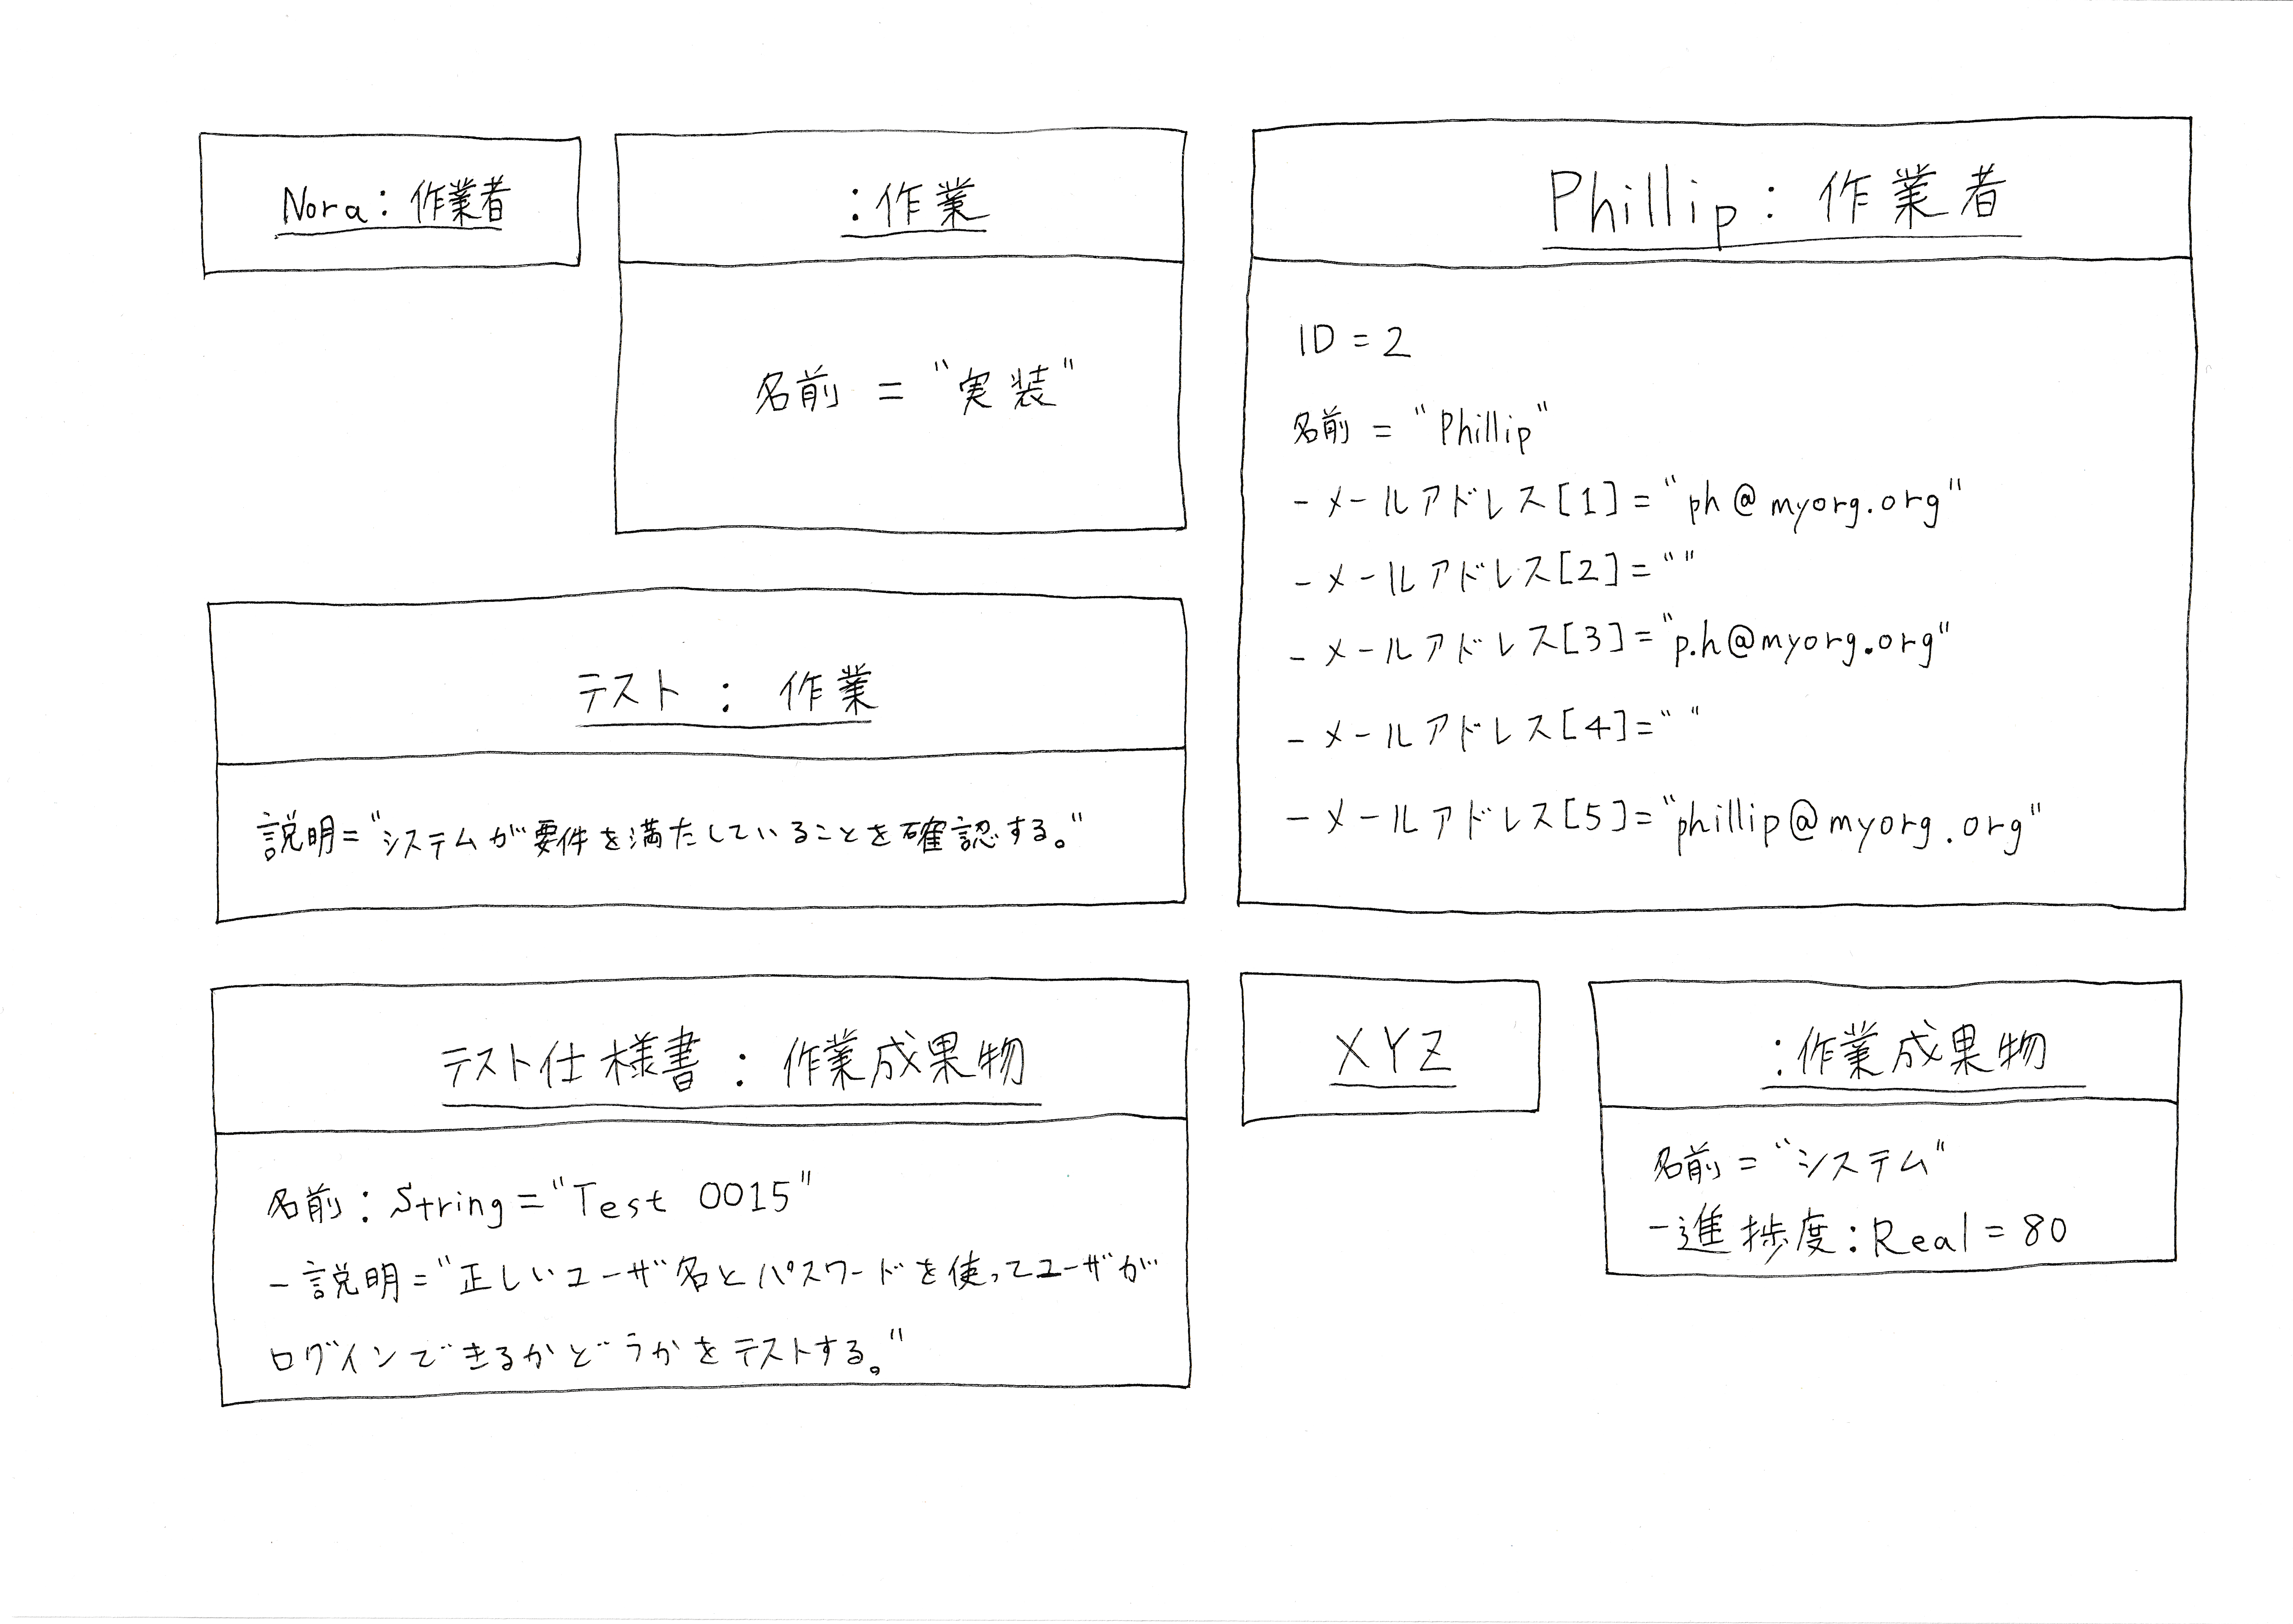 Nora: 作業者
:作業
名前 = "実装"
Phillip: 作業者
ID = 2
名前 = "Phillip"
-メールアドレス[1]="ph@myorg.org"
-メールアドレス[2]=""
-メールアドレス[3]="p.h@myorg.org"
-メールアドレス[4]=" "
-メールアドレス[5]="phillip@myorg.org"
テスト : 作業
説明="システムが要件を満たしていることを確認する。"
テスト仕様書 : 作業成果物
名前: String="Test 0015"
-説明="正しいユーザ名とパスワードを使ってユーザが
ログインできるかどうかをテストする。"
XYZ
:作業成果物
名前="システム"
-進捗度:Real=80